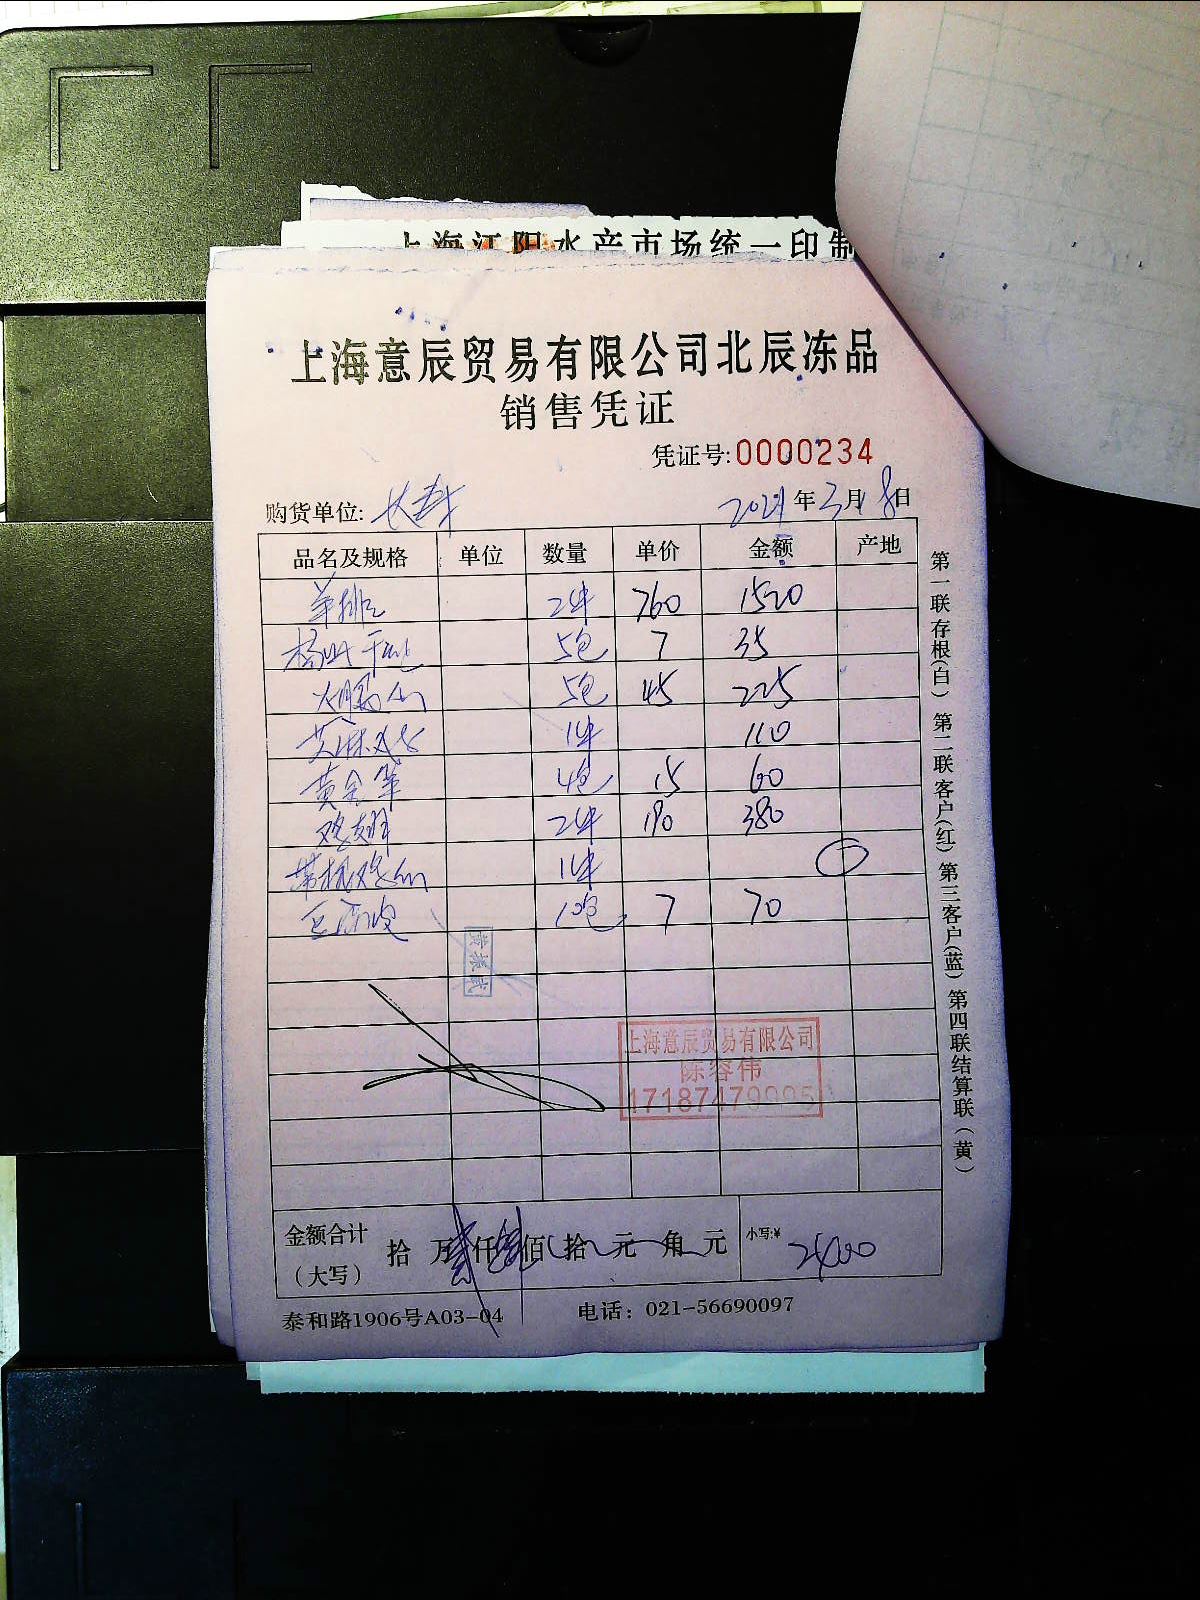 上海江阳水产市场统一印制
上海意辰贸易有限公司北辰冻品
销售凭证
凭证号:0000234
购货单位: 2021年3月8日
品名及规格 单位 数量 单价 金额 产地
羊排 2件 760 1520
5包 7 35
5包 45 225
1件 110
黄金笋 4包 15 60
鸡翅 2件 190 380
1件
豆腐皮 10包 7 70
黄振武
上海意辰贸易有限公司
陈容伟
金额合计(大写) 拾 万 仟 佰 拾 元 角 元 小写:¥ 2400
泰和路1906号A03-04 电话: 021-56690097
第一联存根(白) 第二联客户(红) 第三客户(蓝) 第四联结算联(黄)